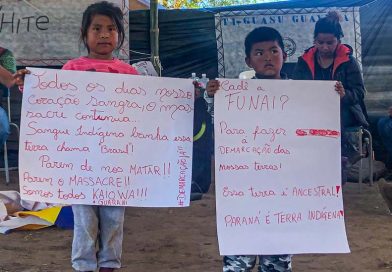 HITE
T.I. GUASU GUAVIRÁ
Todos os dias nosso
coração sangra, o mas-
sacre continua...
Sangue Indígena banha essa
terra chama "Brasil"!
Parem de nos MATAR!!
Parem o MASSACRE!!
Somos todos KAIOWA!!!
GUARANI
#DEMARCAÇÃO JÁ!
Cadê a
FUNAI?
Para fazer a
DEMARCAÇÃO das
nossas terras!
Essa terra é ANCESTRAL!
PARANÁ É TERRA INDÍGENA!